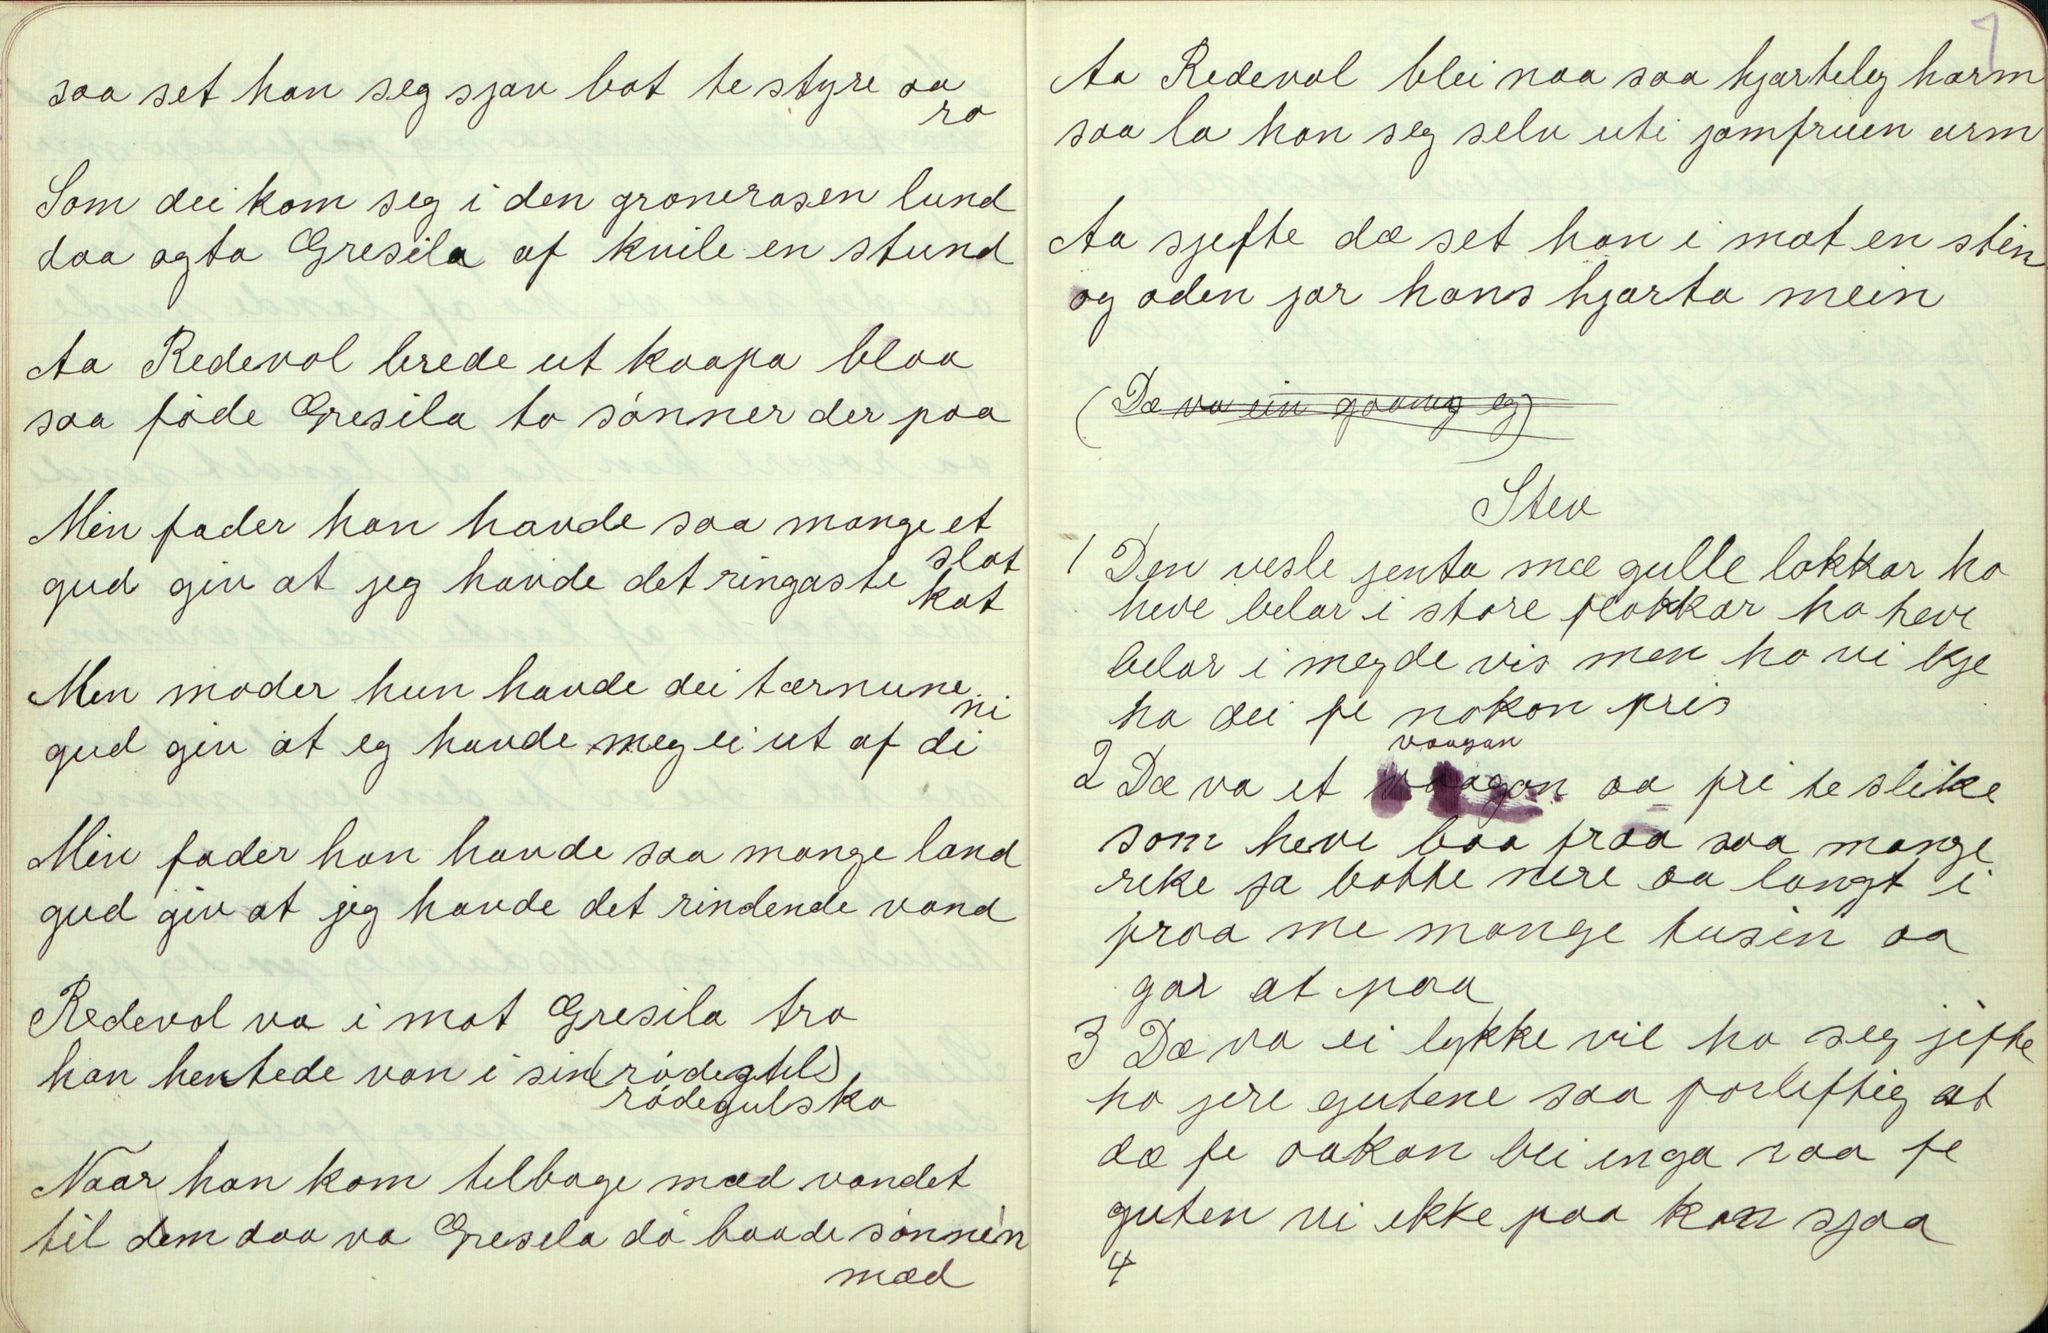 saa set han seg sjav bat te styre aa
ro
Som dei kom seg i den grønerasen lund
daa agta Gresila af kvile en stund
Aa Redevol brede ut kaapa blaa
saa føde Gresila to sønner der paa
Min fader han havde saa mange et
slot
gud giv at jeg havde det ringaste
kot
Men moder hun havde dei tærnune
ni
gud giv at eg havde meg ei ut af di
Min fader han havde saa mange land
gud giv at jeg havde det rindende vand
Redevol va i mot Gresila tro
han hentede van i sin (rødegtil)
rødegulsko
Naar han kom telbage mæd vandet
til dem daa va Gresela dø baade sønnen
mæd
7
Aa Redevol blei naa saa hjarteleg harm
saa la han seg selv uti jomfruen arm
Aa sjefte dæ set han i mot en stein
og oden jar hans hjarta mein
(Dæ va ein gaang eg)
Stev
1 Den vesle jenta mæ gulle lokkar ho
heve belar i store flokkar ho heve
belar i megde vis men ho vi kje
ha dei fe nokon pris
vaagan
2 Dæ va et vaagan aa fri te slike
som heve baa fraa saa mange
reke ja botte nere aa langt i
fraa me mange tusin aa
gar at paa
3 Dæ va ei lykke vil ho seg jifte
ho jere gutene saa forliftig at
dæ fe aakan bei inga raa fe
guten vi ikke paa kan sjaa
4